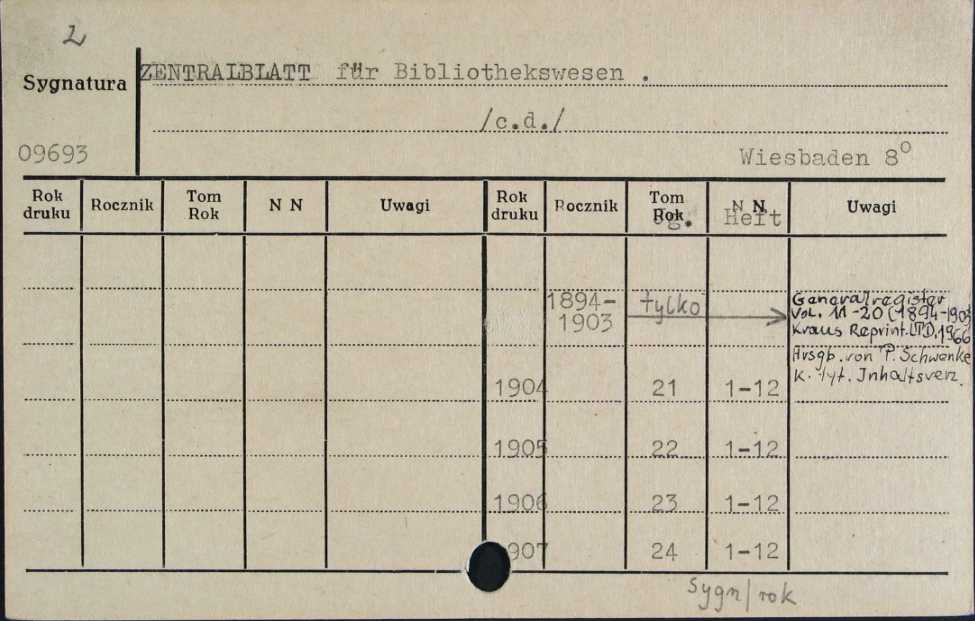 2
Sygnatura ZENTRALBLATT für Bibliothekswesen .
/c.d./
09693 Wiesbaden 8°
Rok druku Rocznik Tom Rok N N Uwagi Rok druku Rocznik Tom Rok N N Heft Uwagi
1894-1903 tylko
Generalregister
Vol. 11-20 (1894-1903)
Kraus Reprint. LTD. 1966
Hrsgb. von P. Schwenke
K. tyt. Inhaltsverz.
1904 21 1-12
1905 22 1-12
1906 23 1-12
907 24 1-12
Sygn/rok